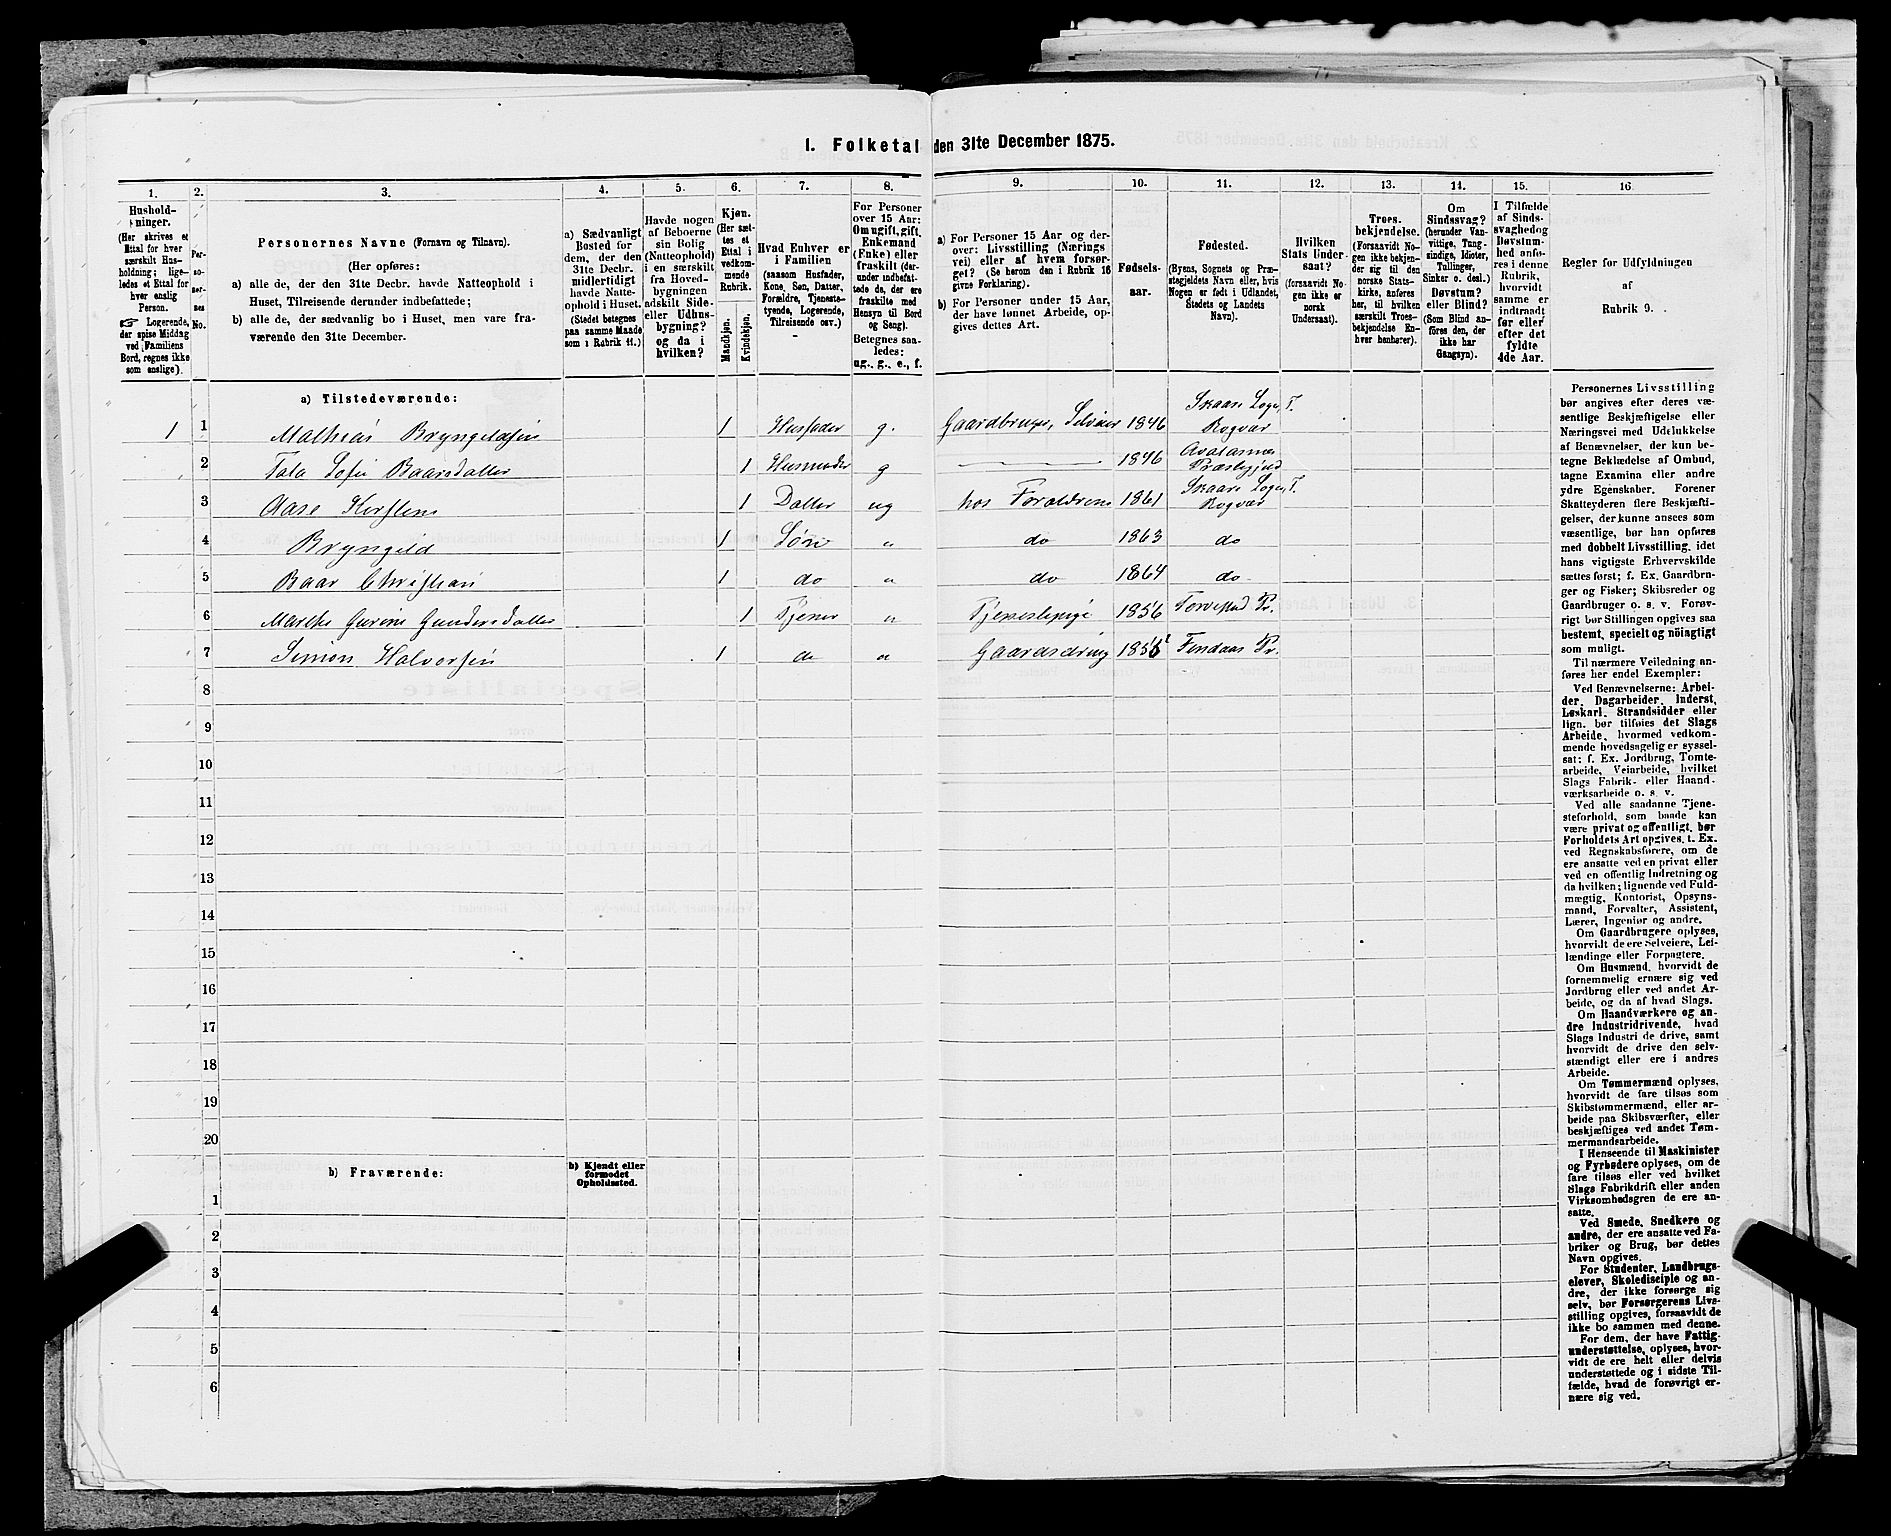 1. Folketal den 31te December 1875.
1.
2.
3.
4.
5.
6.
7.
8.
9.
10.
11.
12.
13.
14.
15.
16
Hushold-
ninger.
(Her skrives et
Ettal for hver
særskilt Hus-
holdning; lige-
ledes et Ettal for
hver enslig
Person.
☞ Logerende,
der spise Middag
ved Familiens
Bord, regnes ikke
som enslige).
Per-
so-
ner-
nes
No.
Personernes Navne (Fornavn og Tilnavn).
(Her opføres:
a) alle de, der den 31te Decbr. havde Natteophold i
Huset, Tilreisende derunder indbefattede;
b) alle de, der sædvanlig bo i Huset, men vare fra-
værende den 31te December.
a) Sædvanligt
Bosted for
dem, der den
31te Decbr.
midlertidigt
havde Natte-
ophold i Huset.
(Stedet betegnes
paa samme Maade
som i Rubrik 11.)
Havde nogen
af Beboerne
sin Bolig
(Natteophold)
i en særskilt
fra Hoved-
bygningen
adskilt Side-
eller Udhus-
bygning?
og da i
hvilken?
Kjøn.
(Her sæt-
tes et
Ettal i
vedkom-
mende
Rubrik.
Mandkjøn.
Kvindekjøn.
Hvad Enhver er
i Familien
(saasom Husfader,
Kone, Søn, Datter,
Forældre, Tjeneste-
tyende, Logerende,
Tilreisende osv.)
For Personer
over 15 Aar:
Om ugift, gift,
Enkemand
(Enke) eller
fraskilt (der-
under indbefat-
tede de, der ere
fraskilte med
Hensyn til Bord
og Seng).
Betegnes saa-
ledes:
ug., g., e., f.
a) For Personer 15 Aar og der-
over: Livsstilling (Nærings
vei) eller af hvem forsør-
get? (Se herom den i Rubrik 16
givne Forklaring).
b) For Personer under 15 Aar,
der have lønnet Arbeide, op-
gives dettes Art.
Fødsels-
aar.
Fødested.
(Byens, Sognets og Præ-
stegjeldets Navn eller, hvis
Nogen er født i Udlandet,
Stedets og Landets
Navn).
Hvilken
Stats Under-
saat?
(forsaavidt No-
gen ikke er
norsk
Undersaat).
Troes-
bekjendelse.
(Forsaavidt No-
gen ikke bekjen-
der sig til den
norske Stats-
kirke, anføres
her, til hvilken
særskilt Troes-
bekjendelse En-
hver henhører).
Om
Sindssvag?
(herunder Van-
vittige, Tung-
sindige, Idioter,
Tullinger,
Sinker o. desl.)
Døvstum?
eller Blind?
(Som Blind an-
føres den, der
ikke har
Gangsyn).
I Tilfælde
af Sinds-
svaghed og
Døvstum-
hed anfø-
res i denne
Rubrik,
hvorvidt
samme er
indtraadt
før eller
efter det
fyldte
4de Aar.
Regler for Udfyldningen
af
Rubrik 9.
a) Tilstedeværende:
1 1 Mathias Bryngeldsen 1 Husfader g. Gaardbruger, Selveier 1846 Skaare Sogn, T. Røgvær
2 Tala Sofie Baarsdatter 1 Husmoder g 1846 Avaldsnæs Præstegjæld
3 Aase Kirstine 1 Datter ug hos Forældrene 1861 Skaare Sogn, T. Røgvær
4 Bryngeld 1 Søn " do 1863 do
5 Baar Christian 1 do " do 1864 do
6 Marthe Gurine Gundersdatter 1 Tjener " Tjenestepige 1856 Torvestad Pr.
7 Simon Halvorsen 1 do " Gaardsdreng Findaas Pr.
8
9
10
11
12
13
14
15
16
17
18
19
20
b) Fraværende:
b) Kjendt eller
formodet
Opholdssted.
1
2
3
4
5
6
Personernes Livsstilling
bør angives efter deres væ-
sentlige Beskjæftigelse eller
Næringsvei med Udelukkelse
af Benævnelser, der kun be-
tegne Beklædelse af Ombud,
tagne Examina eller andre
ydre Egenskaber. Forener
Skatteyderen flere Beskjæfti-
gelser, der kunne ansees som
væsentlige, bør han opføres
med dobbelt Livsstilling, idet
hans vigtigste Erhvervskilde
sættes først; f. Ex. Gaardbru-
ger og Fisker; Skibsreder og
Gaardbruger o. s. v. Forøv-
rigt bør Stillingen opgives saa
bestemt, specielt og nøiagtigt
som muligt.
Til nærmere Veiledning an-
føres her endel Exempler:
Ved Benævnelserne: Arbei-
der, Dagarbeider, Inderst,
Løskarl, Strandsidder eller
lign. bør tilføies det Slags
Arbeide, hvormed vedkom-
mende hovedsagelig er syssel-
sat; f. Ex. Jordbrug, Tomte-
arbeide, Veiarbeide, hvilket
Slags Fabrik- eller Haand-
værksarbeide o. s. v.
Ved alle saadanne Tjene-
steforhold, som baade kan
være privat og offentligt, bør
Forholdets Art opgives, t. Ex.
ved Regnskabsførere, om de
ere ansatte ved en privat eller
ved en offentlig Indretning og
da hvilken; lignende ved Fuld-
mægtig, Kontorist, Opsyns-
mand, Forvalter, Assistent,
Lærer, Ingeniør og andre.
Om Gaardbrugere oplyses,
hvorvidt de ere Selveiere, Lei-
lændinge eller Forpagtere.
Om Husmænd, hvorvidt de
fornemmelig ernære sig ved
Jordbrug eller ved andet Ar-
beide, og da af hvad Slags.
Om Haandværkere og an-
dre Industridrivende, hvad
Slags Industri de drive, samt
hvorvidt de drive den selv-
stændigt eller ere i andres
Arbeide.
Om Tømmermænd oplyses,
hvorvidt de fare tilsøs som
Skibstømmermænd, eller ar-
beide paa Skibsværfter, eller
beskjæftiges ved andet Tøm-
mermandsarbeide.
I Henseende til Maskinister
og Fyrbødere oplyses, om de
fare tilsøs eller ved hvilket
Slags Fabrikdrift eller anden
Virksomhedsgren de ere an-
satte.
Ved Smede, Snedkere og
andre, der ere ansatte ved Fa-
briker og Brug, bør dettes
Navn opgives.
For Studenter, Landbrugs-
elever, Skoledisciple og an-
dre, der ikke forsørge sig
selv, bør Forsørgerens Livs-
stilling opgives, forsaavidt de
ikke bo sammen med denne.
For dem, der have Fattig-
understøttelse, oplyses, hvor-
vidt de ere helt eller delvis
understøttede og i sidste Til-
fælde, hvad de forøvrigt er-
nære sig ved.